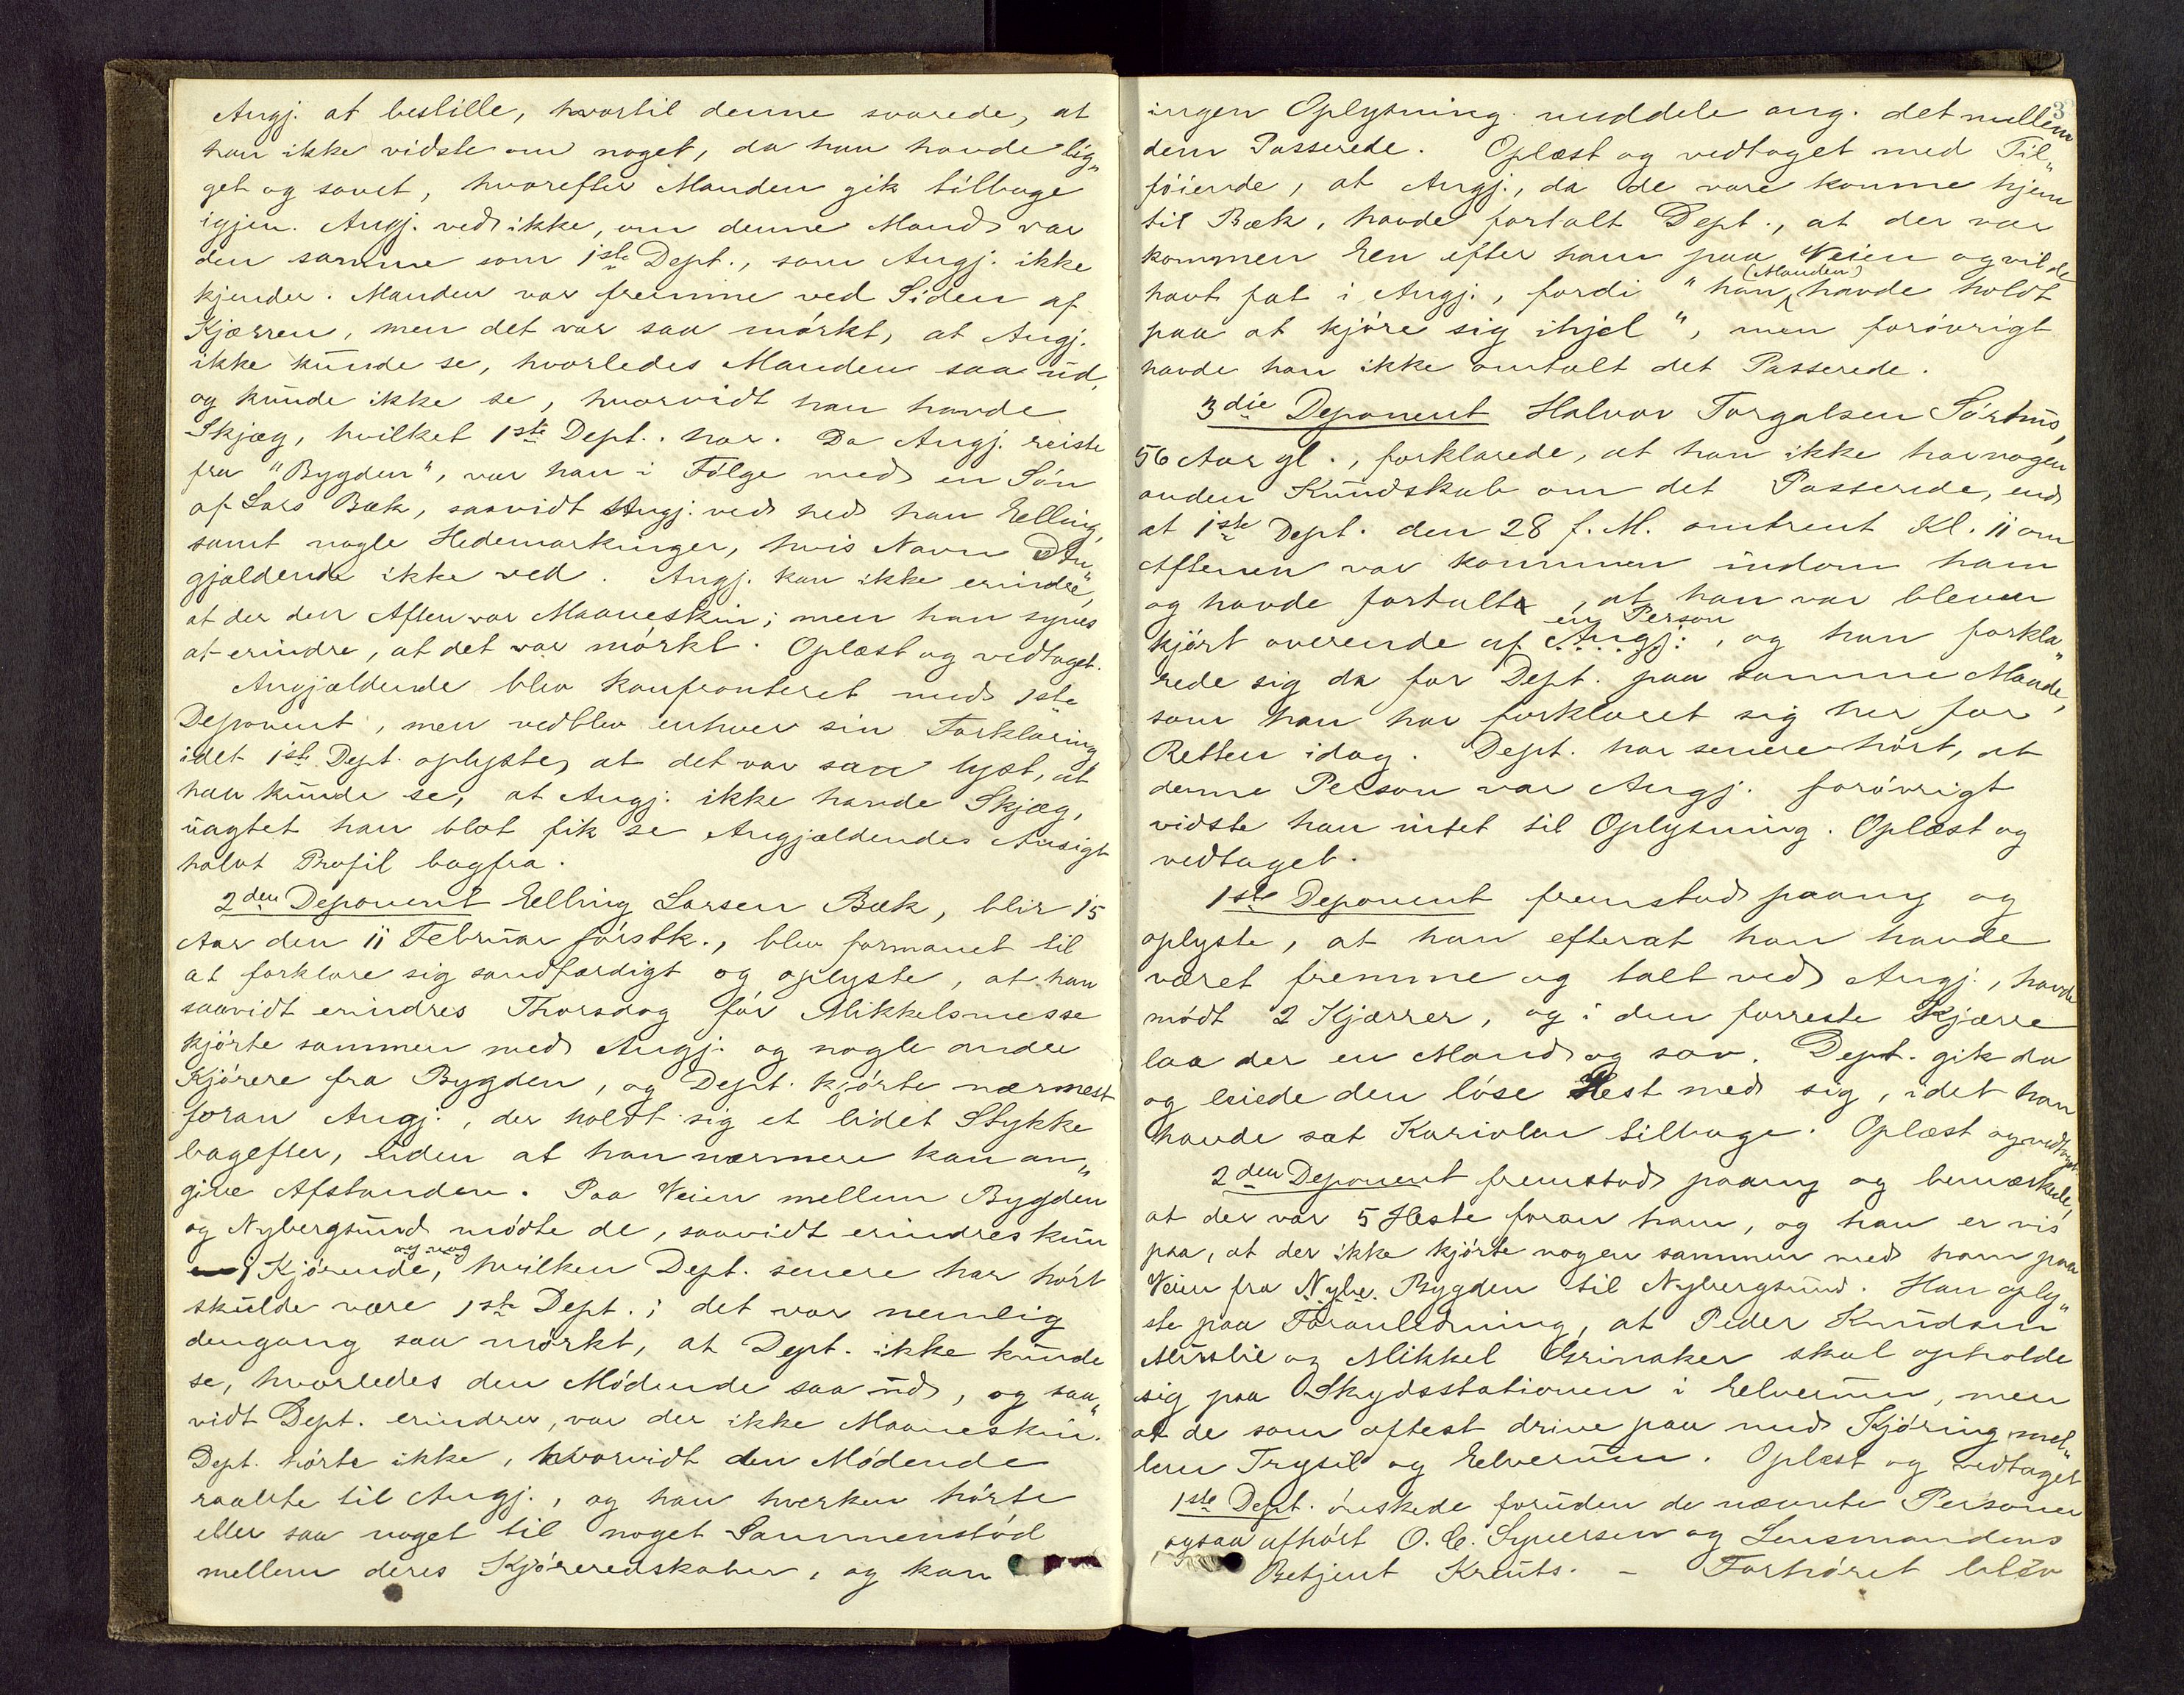 Angj. at bestille, hvortil denne svarede, at
han ikke vidste om noget, da han havde lig„
get og sovet, hvorefter Manden gik tilbage
igjen. Angj. ved ikke, om denne Mand var
den samme som 1ste Dept., som Angj. ikke
kjender. Manden var fremme ved Siden af
Kjærren, men det var saa mörkt, at Angj.
ikke kunde se, hvorledes Manden saa ud,
og kunde ikke se, hvorvidt han havde
Skjæg, hvilket 1ste Dept. har. Da Angj. reiste
fra "Bygden", var han i Fölge med en Sön
af Lars Bæk, saavidt Angj. ved hed han Elling,
samt nogle Hedemarkinger, hvis Navn An„
gjældende ikke ved. Angj. kan ikke erindre,
at der den Aften var Maaneskin; men han synes
at erindre, at det var mörkt. Oplæst og vedtaget.
Angjældende blev konfronteret med 1ste
Deponent, men vedblev enhver sin Forklaring
idet 1ste Dept. oplyste, at det var saa lyst, at
han kunde se, at Angj. ikke havde Skjæg,
uagtet han blot fik se Angjældendes Ansigt
halvt Profil bagfra.
2den Deponent Elling Larsen Bæk, blir 15
Aar den 11 Februar förstk., blev formanet til
at forklare sig sandfærdigt og oplyste, at han
saavidt erindres Thorsdag för Mikkelsmesse
kjörte sammen med Angj. og nogle andre
Kjörere fra Bygden, og Dept. kjörte nærmest
foran Angj., der holdt sig et lidet Stykke
bagefter, uden at han nærmere kan an„
give Afstanden. Paa Veien mellem Bygden
og Nybergsund mödte de, saavidt erindres kun
og nog
1 Kjörende, hvilken Dept. senere har hört
skulde være 1ste Dept.; det var nemlig
dengang saa mörkt, at Dept. ikke kunde
se, hvorledes den Mödende saa ud, og saa„
vidt Dept. erindrer, var der ikke Maaneskin.
Dept. hörte ikke, hvorvidt den Mödende
raabte til Angj., og han hverken hörte
eller saa noget til noget Sammenstöd
mellem deres Kjöreredskaber, og kan
3
ingen Oplysning meddele ang. det mellem
dem Passerede. Oplæst og vedtaget med Til„
föiende, at Angj., da de vare komne hjem
til Bæk, havde fortalt Dept., at der var
kommen Een efter ham paa Veien og vilde
(Manden)
havt fat i Angj., fordi "han havde holdt
paa at kjöre sig ihjel", men forövrigt
havde han ikke omtalt det Passerede.
3die Deponent Halvor Torgalsen Sörhus,
56 Aar gl., forklarede, at han ikke har nogen
anden Kundskab om det Passerede, end
at 1ste Dept. den 28 f. M. omtrent Kl. 11 om
Aftenen var kommen indom ham
og havde fortalt, at han var bleven
en Person
kjört overende af Angj., og han forkla„
rede sig da for Dept. paa samme Maade,
som han har forklaret sig her for
Retten idag. Dept. har senere hört, at
denne Person var Angj. forövrigt
vidste han intet til Oplysning. Oplæst og
vedtaget.
1ste Deponent fremstod paany og
oplyste, at han efterat han havde
været fremme og talt ved Angj., havde
mödt 2 Kjærrer, og i den forreste Kjærre
laa der en Mand og sov. Dept. gik da
og leiede den löse Hest med sig, idet han
havde sat Kariolen tilbage. Oplæst og vedtaget.
2den Deponent fremstod paany og bemærkede,
at der var 5 Heste foran ham, og han er vis
paa, at der ikke kjörte nogen sammen med ham paa
Veien fra Nybe. Bygden til Nybergsund. Han oply„
ste paa Foranledning, at Peder Knudsen
og Mikkel Grinaker skal opholde
sig paa Skydsstationen i Elverum, men
at de som oftest drive paa med Kjöring mel„
lem Trysil og Elverum. Oplæst og vedtaget
1ste Dept. önskede foruden de nævnte Personer
ogsaa afhört O. C. Syversen og Lensmandens
Betjent Kreuts. – Forhöret blev